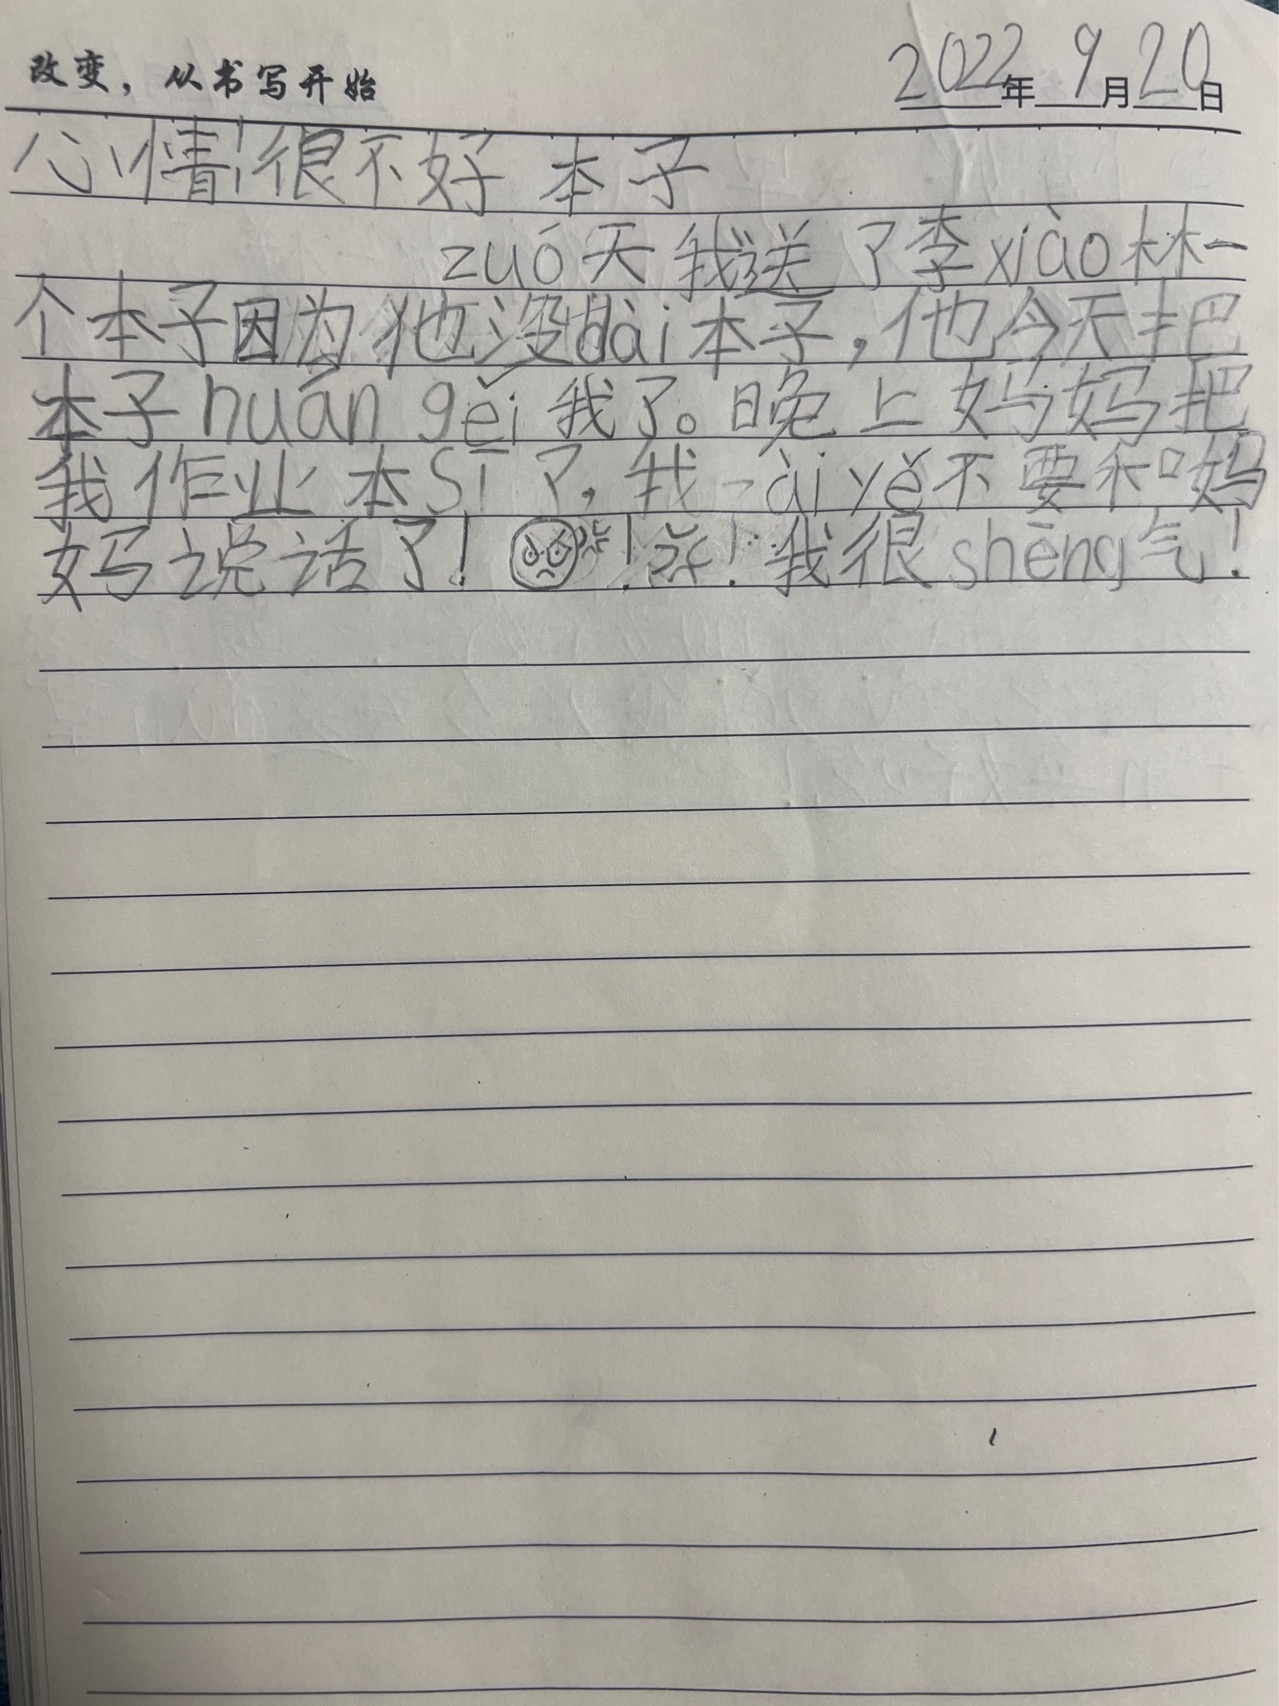 改变，从书写开始 2022年9月20日
心情很不好 本子
zuó天我送了李xiào林一
个本子因为他没dài本子，他今天把
本子huán gěi我了。晚上妈妈把
我作业本sī了，我zài yě不要和妈
妈说话了！！！我很shēng气！